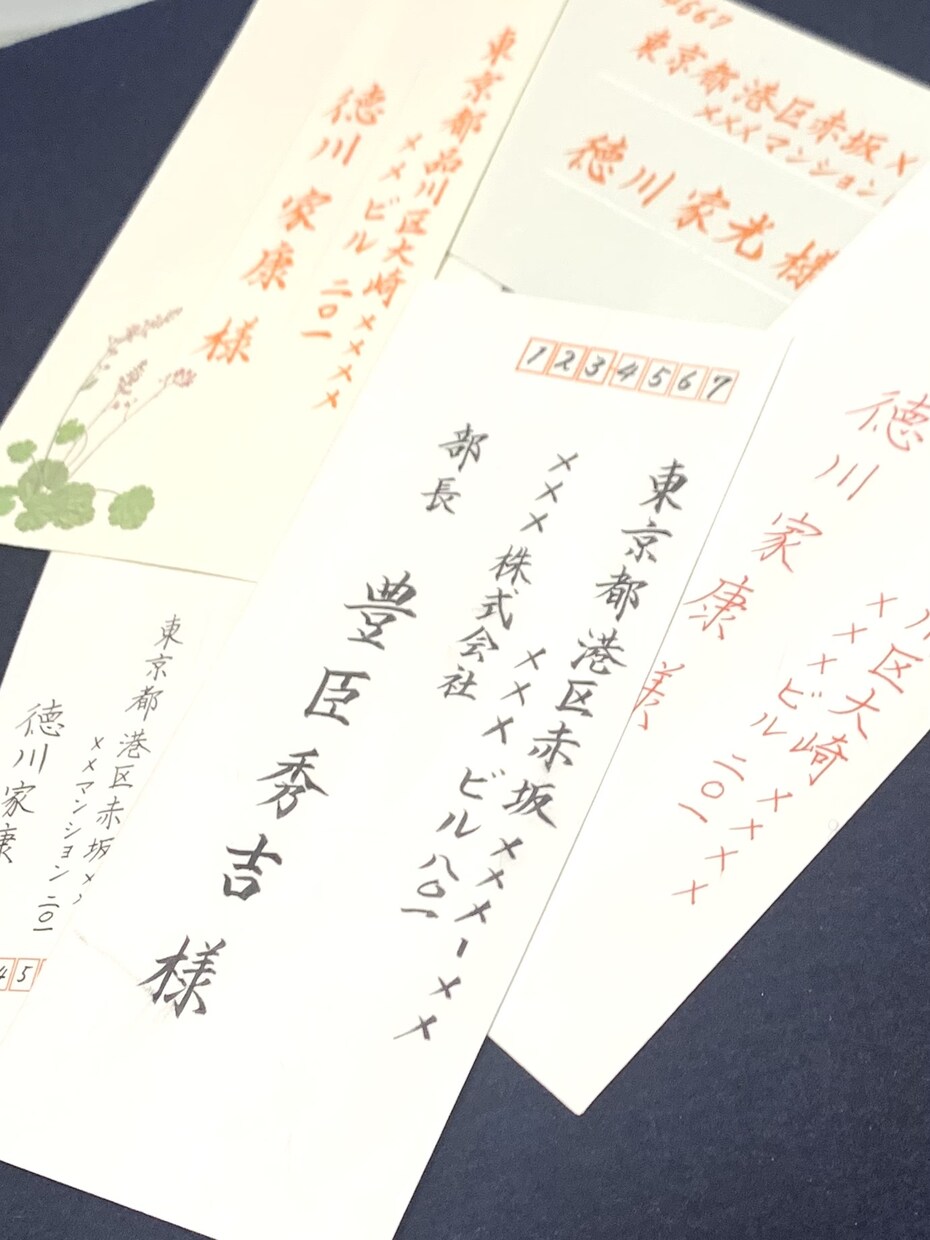 東京都品川区大崎××××
××ビル 二〇一
徳川 家康 様
4667
東京都港区赤坂×
×××マンション
徳川 家光 様
1234567
東京都港区赤坂×××-××
×××ビル八〇一
×××株式会社
部長
豊臣秀吉 様
川区大崎××××
×××ビル 二〇一
徳川家康 様
東京都港区赤坂××
××マンション二〇一
徳川家康
45